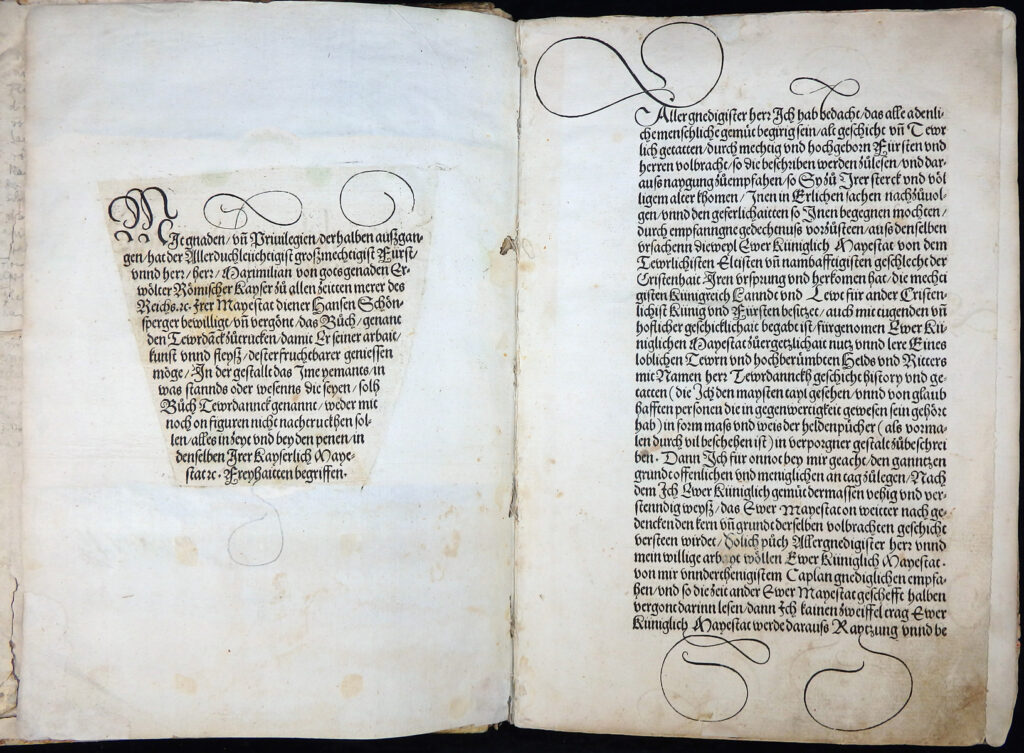 Mit gnaden/ vñ Priuilegien/ derhalben außgan-
gen/ hat der Allerduchleüchtigist großmechtigist Fürst
vnnd herr/ herr/ Maximilian von gots genaden Er-
wölter Römischer Kayser zů allen zeitten merer des
Reichs ꝛc. Irer Mayestat diener Hansen Schön-
sperger bewillig/ vñ vergönt/ das Bůch/ genant
den Tewrdãck zůtrucken/ damit Er seiner arbait/
kunst vnnd fleysz/ dester fruchtbarer geniessen
möge/ In der gestallt das Ime yemants/ in
was stannds oder wesenns die seyen/ solh
Bůch Tewrdannck genannt/ weder mit
noch on figuren nicht nachtruckhen sol-
len/ alles in zeyt vnd bey den penen/ in
denselben Irer Kayserlich Maye-
stat ꝛc. Freyhaitten begriffen.
Aller gnedigister herr Ich hab bedacht/ das alle adenli-
che menschliche gemüt begirig sein/ alt geschicht vñ Tewr
lich getatten/ durch mechtig vnd hochgeborn Fürsten vnd
herren volbracht/ so die beschriben werden zůlesen/ vnd dar-
auß naygung zůempfahen/ so Sy zů Irer sterck vnd völ
ligem alter khomen/ Inen in Erlichen sachen nachzůuol-
gen/ vnnd den geferlichaitten so Inen begegnen möchten/
durch empfanngne gedechtnuß vorzůsteen/ auß denselben
vrsachenn dieweyl Ewer Küniglich Mayestat von dem
Tewrlichisten Eltisten vñ nambafftigisten geschlecht der
Cristenhait Iren vrsprung vnd herkomen hat/ die mechti
gisten Künigreich Lanndt vnd Lewt für ander Cristen-
lichist Künig vnd Fürsten besitzet/ auch mit tugenden vñ
hoflicher geschicklichait begabt ist/ fürgenomen Ewer Kü
niglichen Mayestat zůergetzlichait nutz vnnd lere Eines
loblichen Tewrn vnd hochberümbten Helds vnd Ritters
mit Namen herr Tewrdannckh geschicht history vnd ge-
tatten ( die Ich den maysten tayl gesehen/ vnnd von glaub
hafften personen die in gegenwertigkeit gewesen sein gehört
hab ) in form maß vnd weis der heldenpücher ( als vorma-
len durch vil beschehen ist ) in verporgner gestalt zůbeschrei
ben. Dann Ich für onnot bey mir geacht/ den ganntzen
grundt offenlichen vnd meniglichen an tag zůlegen/ Nach
dem Ich Ewer Küniglich gemüt dermassen vehig vnd ver-
stenndig weysz/ das Ewer Mayestat on weitter nach ge-
dencken den kern vñ grundt derselben volbrachten geschicht
versteen wirdet/ Solich půch Allergnedigister herr vnnd
mein willige arbayt wöllen Ewer Küniglich Mayestat.
von mir vnnderthenigistem Caplan gnediglichen empfa-
hen/ vnd so die zeit ander Ewer Mayestat geschefft halben
vergont darinn lesen/ dann Ich kainen zweiffel trag Ewer
Küniglich Mayestat werde darauß Raytzung vnnd be